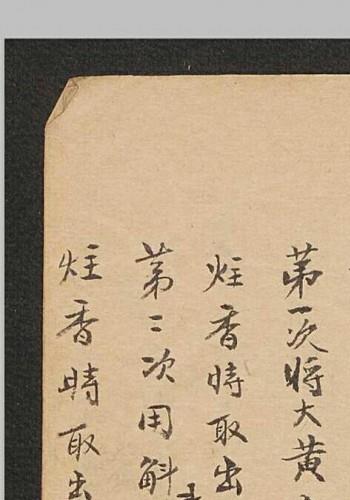 第一次将大黄
炷香時取出
第二次用斛
炷香時取出